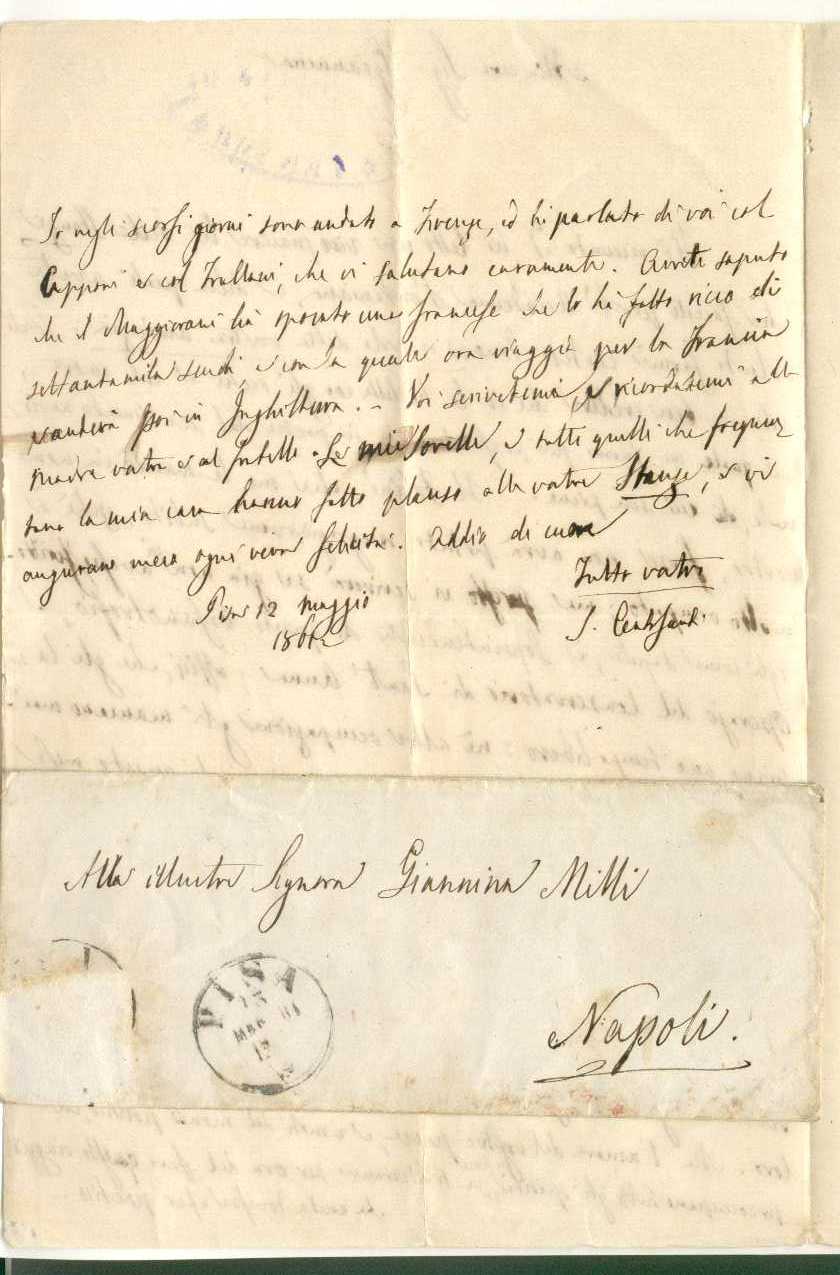 Io negli scorsi giorni sono andato a Firenze, ed hi parlato di voi col
Capponi e col Frullani, che vi salutano caramente. Avrete saputo
che il Maggiorani hà sposato una francese che lo hà fatto ricco di
settantamila scudi, e con la quale ora viaggia per la Francia
e anderà poi in Inghilterra. – Voi scrivetemi, e ricordatemi alla
Madre vostra e al fratello. Le mie Sorelle, e tutti quelli che frequen
tano la mia casa hanno fatto plauso alle vostre Stanze, e vi
augurano meco ogni vera felicità. Addio di cuore
Tutto vostro
Pisa 12 Maggio
S. Centofanti
Alla illustre Signora Giannina Milli
PISA
13
61
12
Napoli.